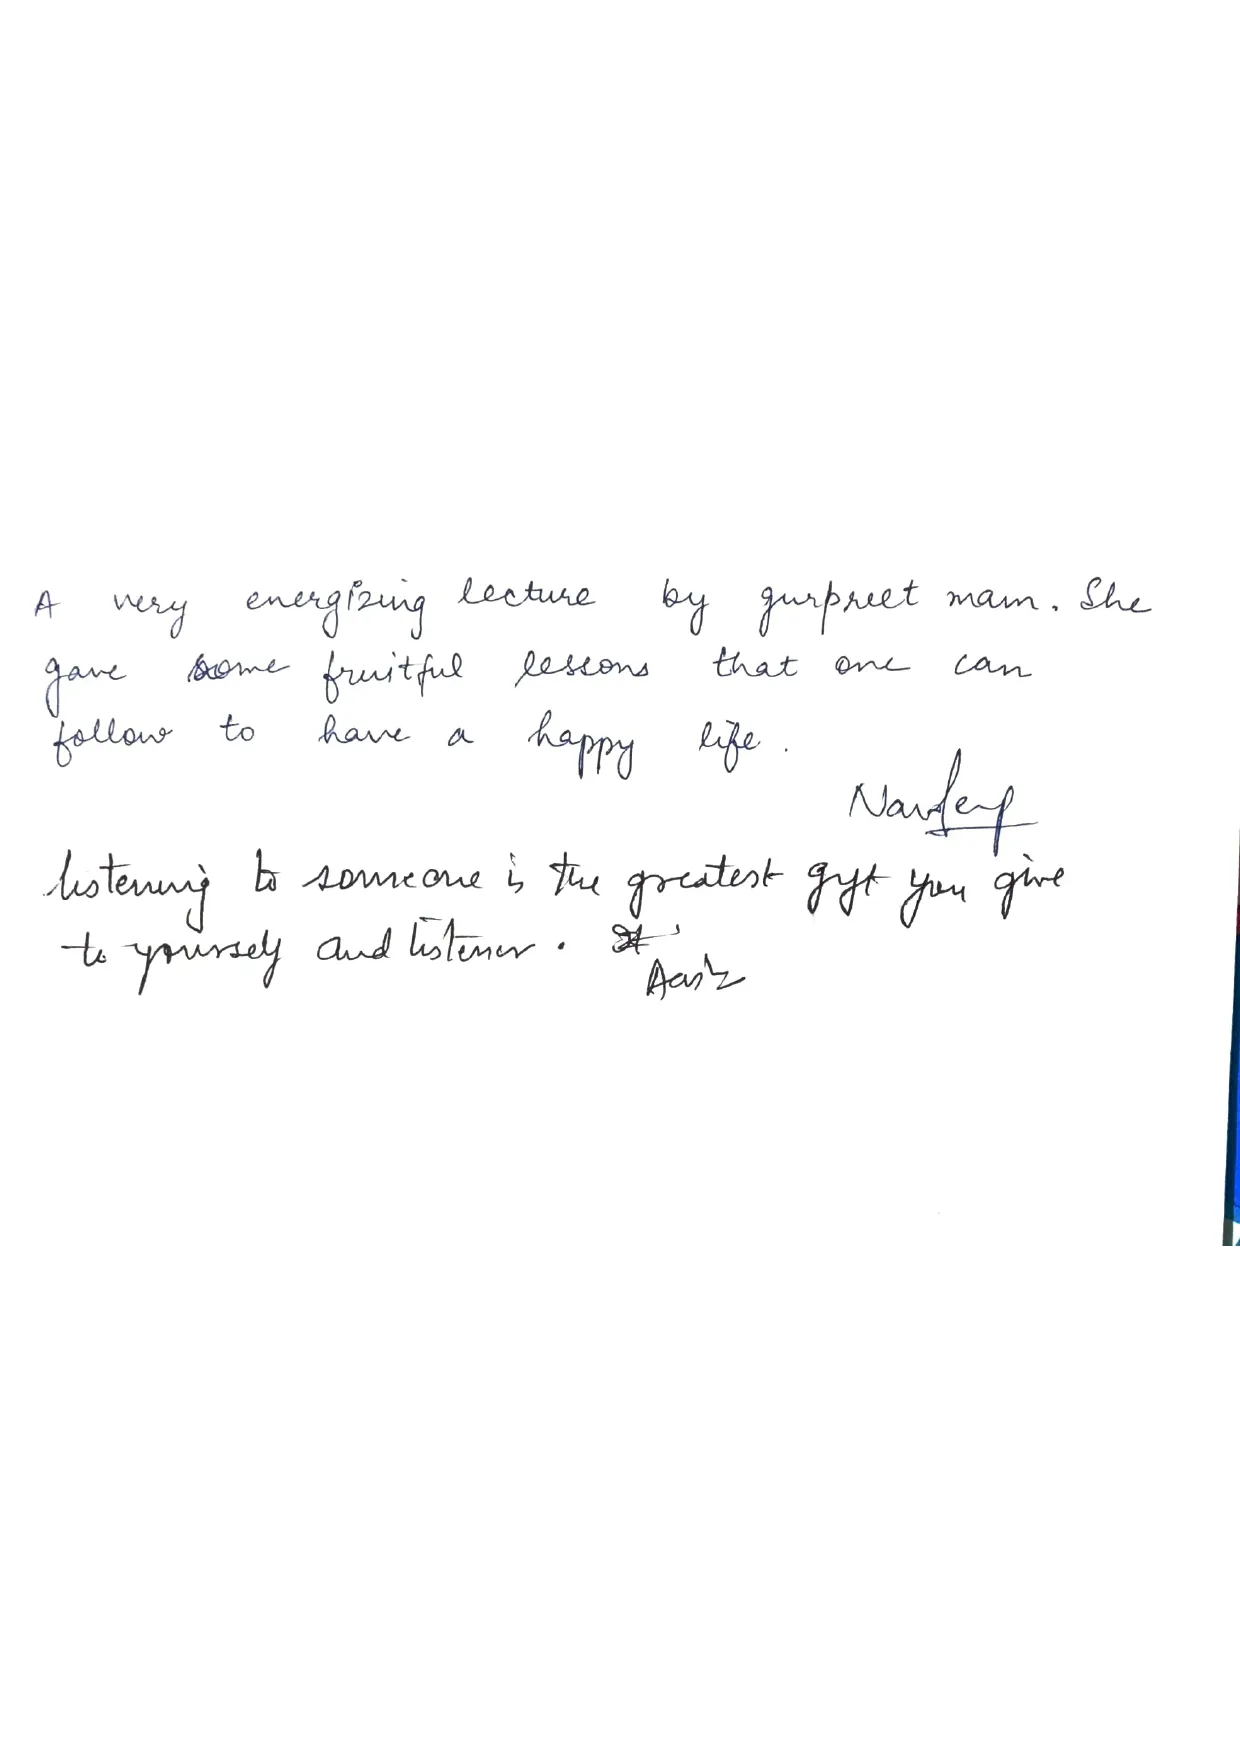 A very energizing lecture by gurpreet mam. She
gave some fruitful lessons that one can
follow to have a happy life.
listening to someone is the greatest gift you give
to yourself and listener.